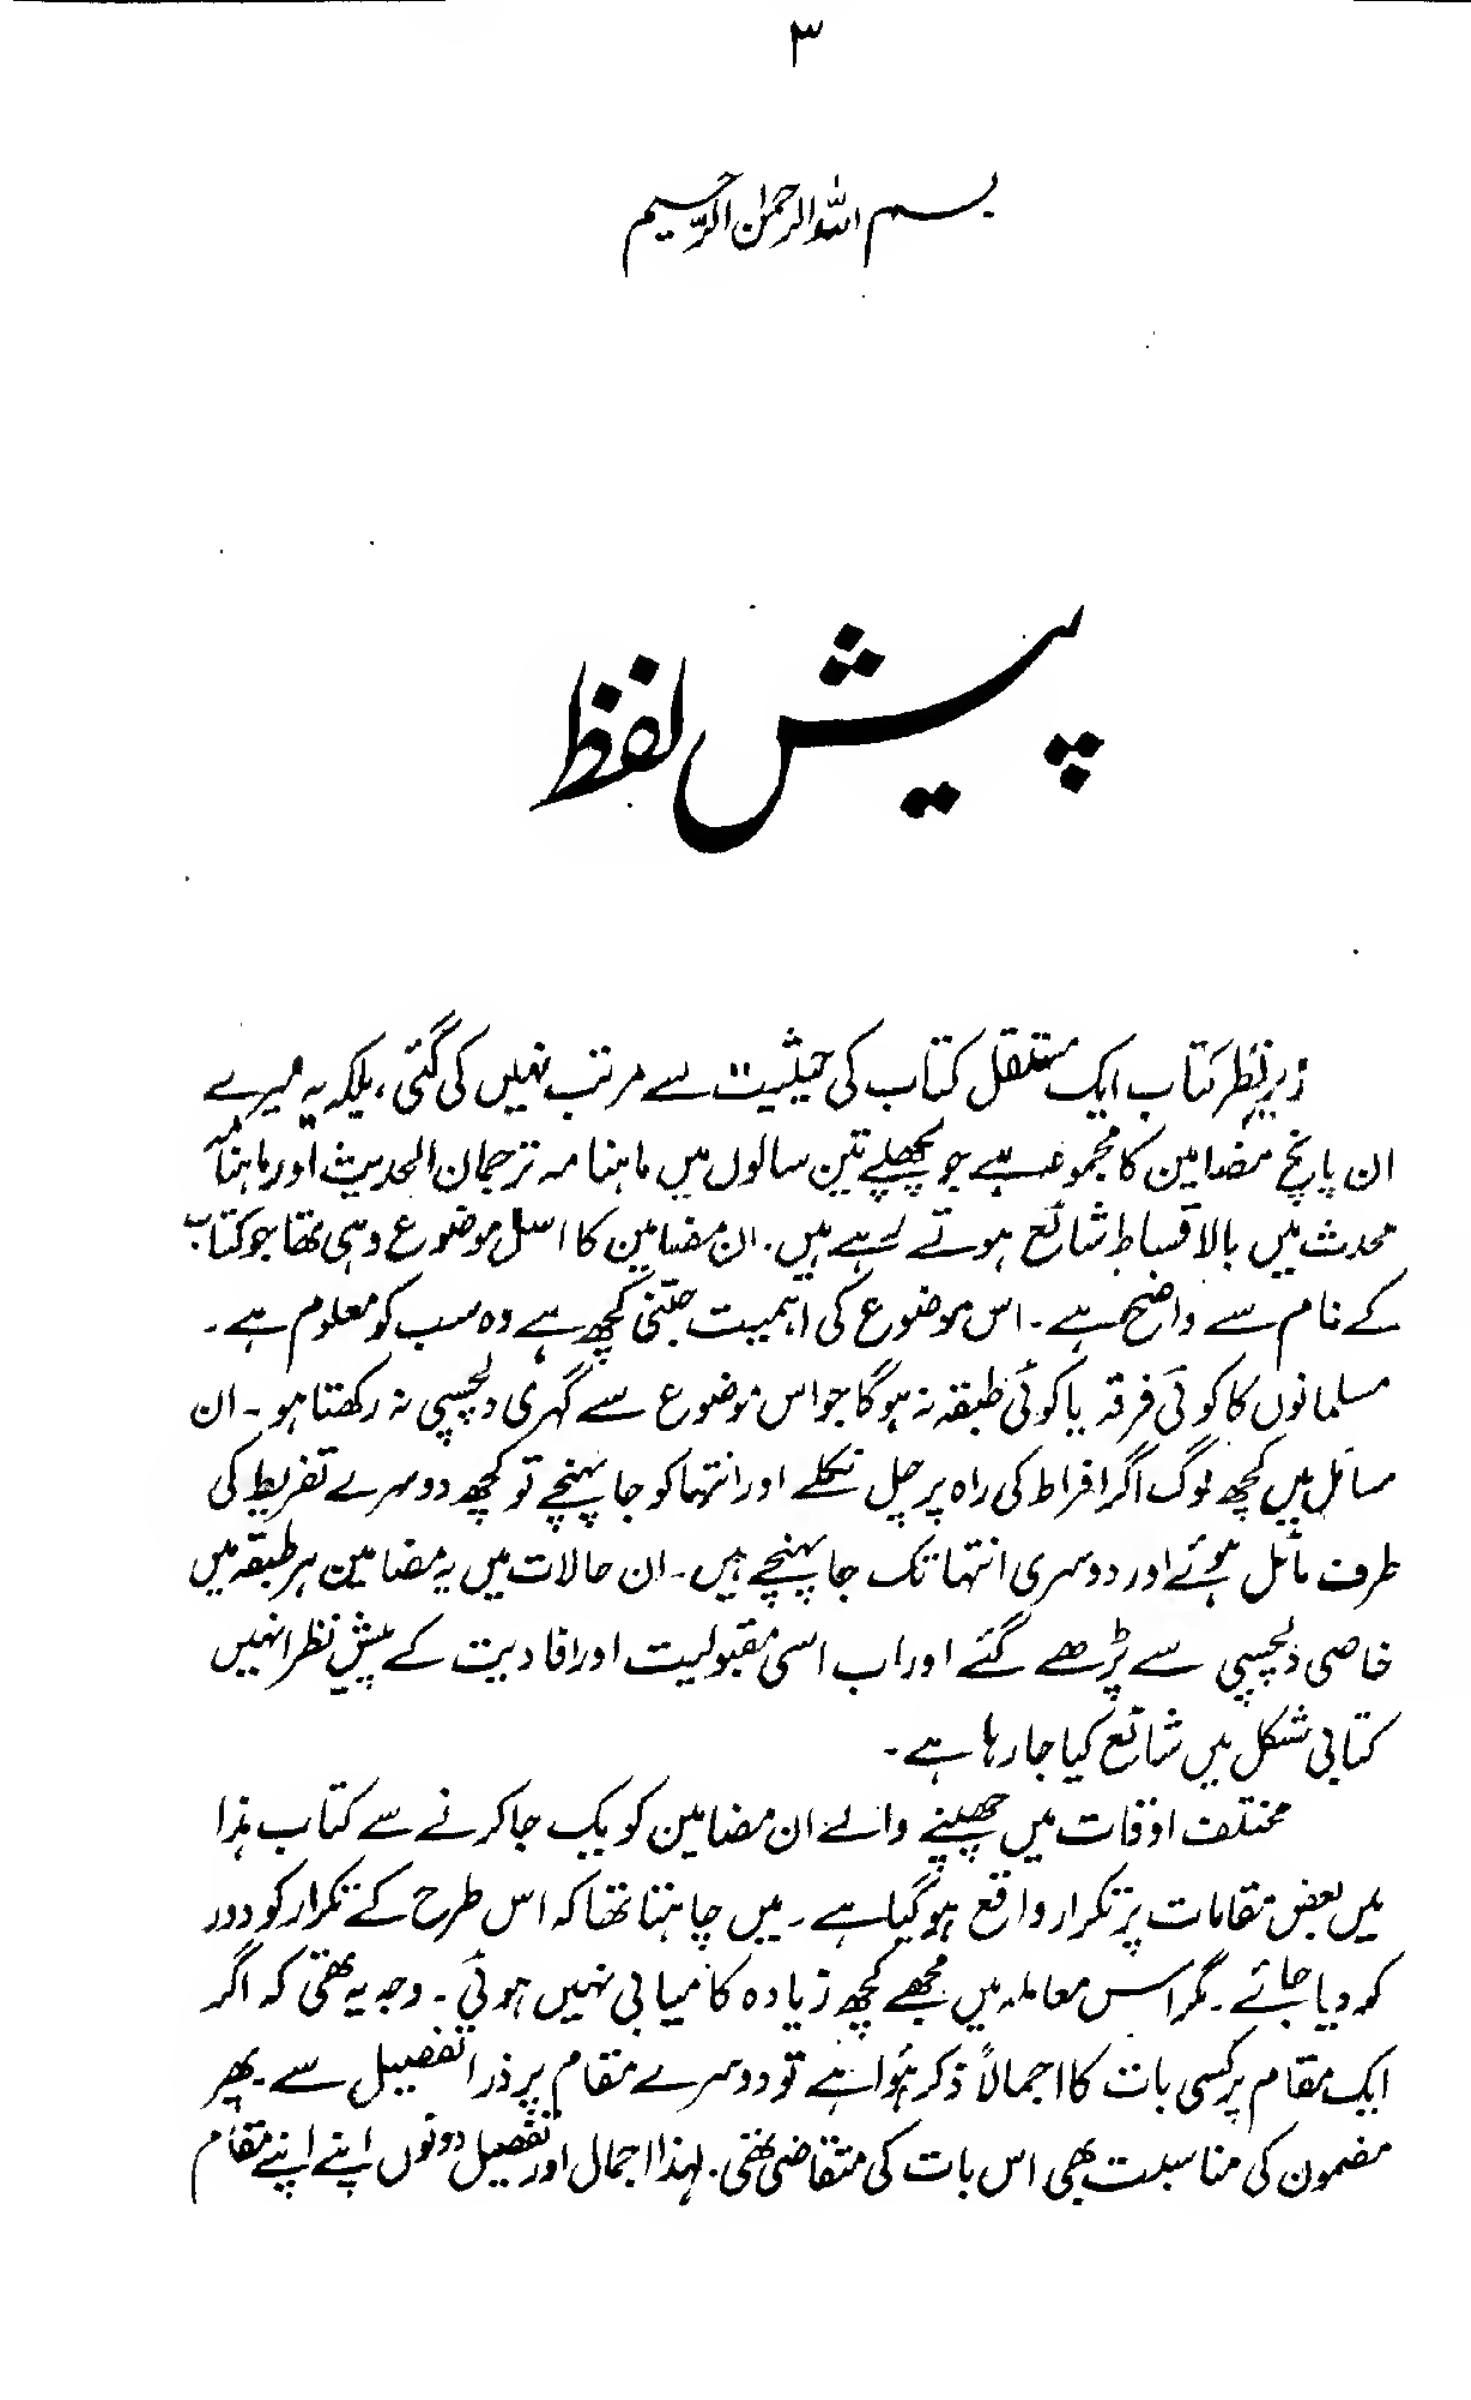 ۳
بسم اللہ الرحمٰن الرّحیم
پیش لفظ
زیرِ نظر کتاب ایک مستقل کتاب کی حیثیت سے مرتب نہیں کی گئی، بلکہ یہ میرے
ان پانچ مضامین کا مجموعہ ہے جو پچھلے تین سالوں میں ماہنامہ ترجمان الحدیث اور ماہنامہ
محدث میں بالاقساط شائع ہوتے رہے ہیں۔ ان مضامین کا اصل موضوع وہی تھا جو کتاب
کے نام سے واضح ہے۔ اس موضوع کی اہمیت جتنی کچھ ہے وہ سب کو معلوم ہے۔
مسلمانوں کا کوئی فرقہ یا کوئی طبقہ نہ ہوگا جو اس موضوع سے گہری دلچسپی نہ رکھتا ہو۔ ان
مسائل میں کچھ لوگ اگر افراط کی راہ پر چل نکلے اور انتہا کو جا پہنچے تو کچھ دوسرے تفریط کی
طرف مائل ہوئے اور دوسری انتہا تک جا پہنچے ہیں۔ ان حالات میں یہ مضامین ہر طبقہ میں
خاصی دلچسپی سے پڑھے گئے اور اب اسی مقبولیت اور افادیت کے پیشِ نظر انہیں
کتابی شکل میں شائع کیا جا رہا ہے۔
مختلف اوقات میں چھپنے والے ان مضامین کو یک جا کرنے سے کتاب ہذا
میں بعض مقامات پر تکرار واقع ہو گیا ہے۔ میں چاہتا تھا کہ اس طرح کے تکرار کو دور
کر دیا جائے۔ مگر اس معاملہ میں مجھے کچھ زیادہ کامیابی نہیں ہوئی۔ وجہ یہ تھی کہ اگر
ایک مقام پر کسی بات کا اجمالاً ذکر ہُوا ہے تو دوسرے مقام پر ذرا تفصیل سے۔ پھر
مضمون کی مناسبت بھی اس بات کی متقاضی تھی۔ لہٰذا اجمال اور تفصیل دونوں اپنے اپنے مقام